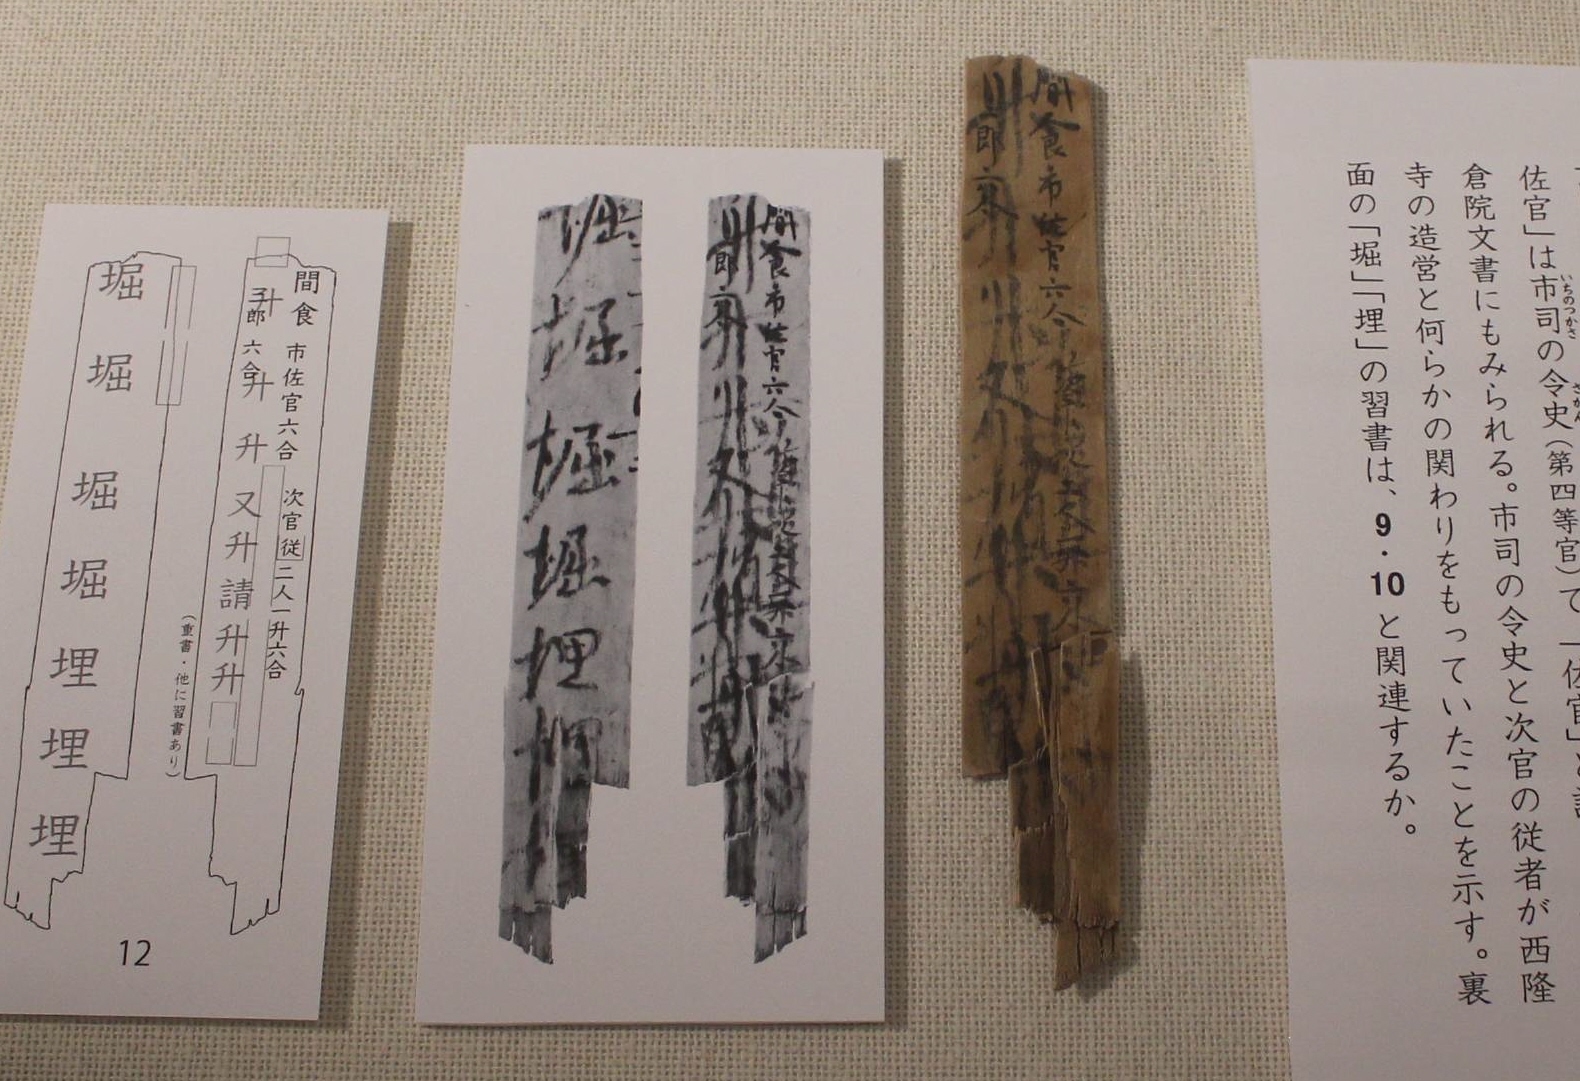 佐官」は市司の令史(第四等官)で「佐官」と
いちのつかさ
さかん
倉院文書にもみられる。市司の令史と次官の従者が西隆
寺の造営と何らかの関わりをもっていたことを示す。裏
面の「堀」「埋」の習書は、9・10と関連するか。
間食市佐官六合
間食市佐官六合
堀堀堀堀埋埋
間食 市佐官六合 次官従二人一升六合
升 升 升 又 升 請 升 升
郎 六合
(重書・他に習書あり)
堀 堀 堀 堀 埋 埋 埋
12